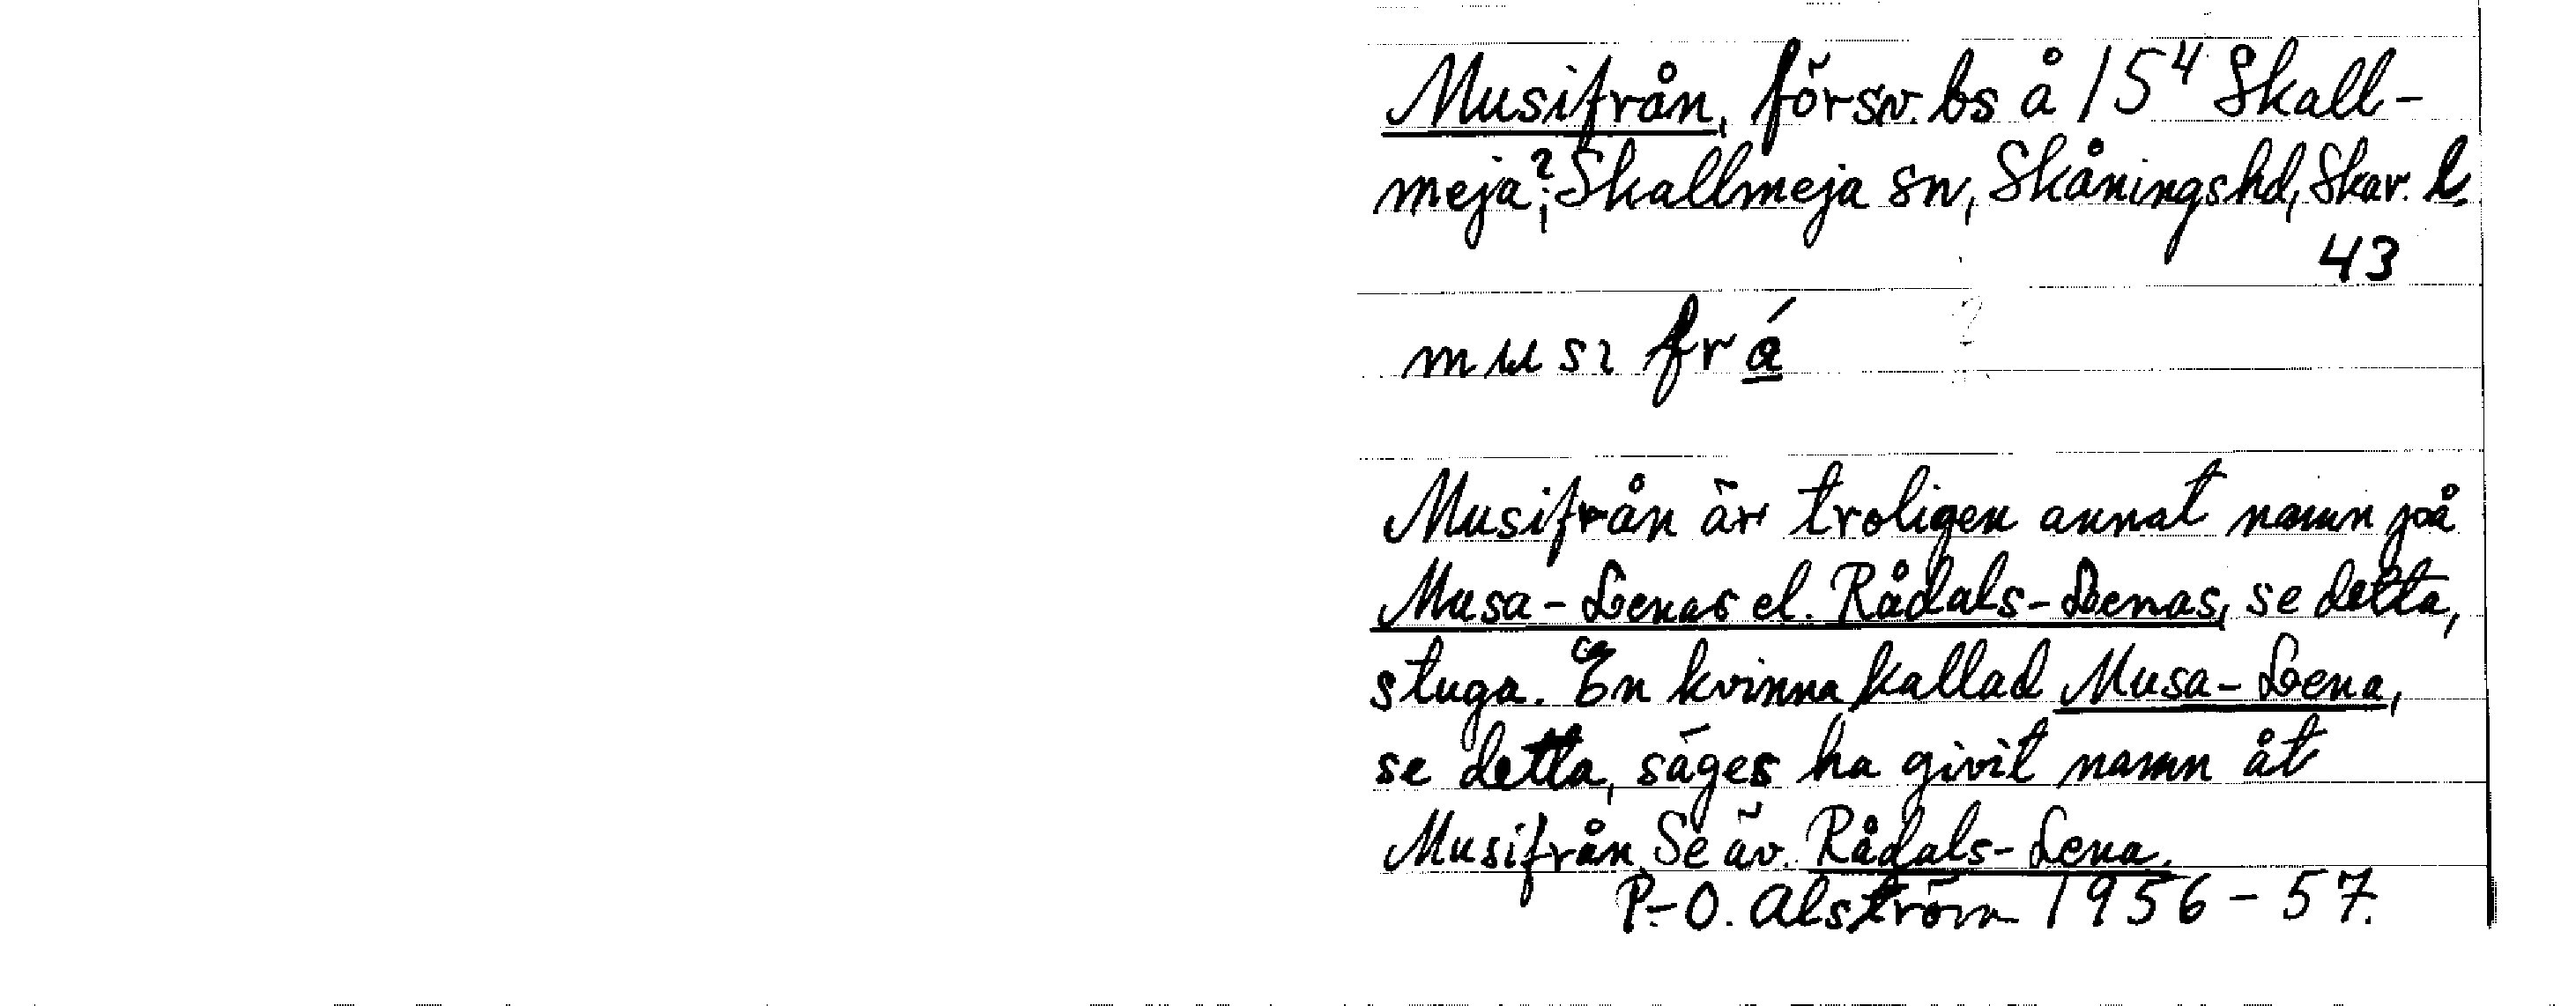 Musifrån, försv. bs å 15⁴ Skall-
meja?; Skallmeja sn, Skånings hd, Skar. l.
43
musi frá
Musifrån är troligen annat namn på
Musa-Lenas el. Rådals-Lenas, se detta,
stuga. En kvinna kallad Musa-Lena,
se detta, säges ha givit namn åt
Musifrån. Se äv. Rådals-Lena.
P.-O. Alström 1956-57.